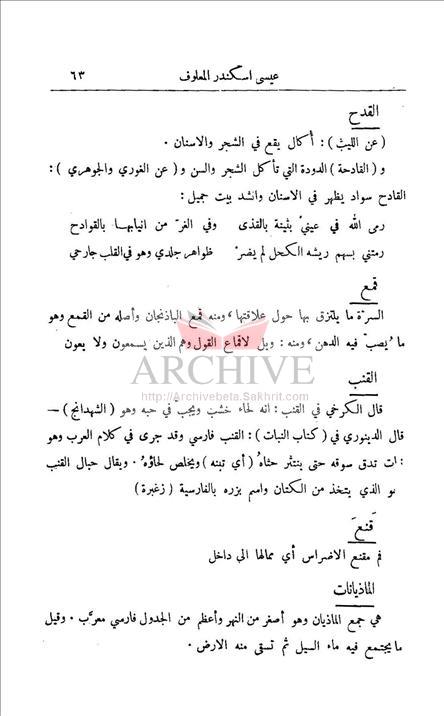 عيسى اسكندر المعلوف ٦٣
القدح
( عن الليث ) : أكال يقع في الشجر والاسنان .
و ( القادحة ) الدودة التي تأكل الشجر والسن و ( عن الغوري والجوهري ) :
القادح سواد يظهر في الاسنان وانشد بيت جميل :
رمى الله في عينيْ بثينة بالقذى وفي الغرّ من انيابها بالقوادح
رمتني بسهم ريشه الكحل لم يضرْ ظواهر جلدي وهو في القلب جارحي
قمع
السرة ما يلتزق بها حول علاقتها ، ومنه قمع الباذنجان وأصله من القمع وهو
ما يُصبّ فيه الدهن ، ومنه : ويل لاقماع القول وهم الذين يسمعون ولا يعون
ARCHIVE
http://Archivebeta.Sakhrit.com
القنب
قال الكرخي في القنب : انه لحاء خشب ويجب في حبه وهو ( الشهدانج ) —
قال الدينوري في ( كتاب النبات ) : القنب فارسي وقد جرى في كلام العرب وهو
تدق سوقه حتى ينتثر حثاهُ ( أي تبنه ) ويخلص لحاؤهُ . ويقال حبال القنب
الذي يتخذ من الكتان واسم بزره بالفارسية ( زغبرة )
قَنعَ
فم مقنع الاضراس أي ممالها الى داخل
الماذيانات
هي جمع الماذيان وهو أصغر من النهر وأعظم من الجدول فارسي معرَّب . وقيل
ما يجتمع فيه ماء السيل ثم تسقى منه الارض .